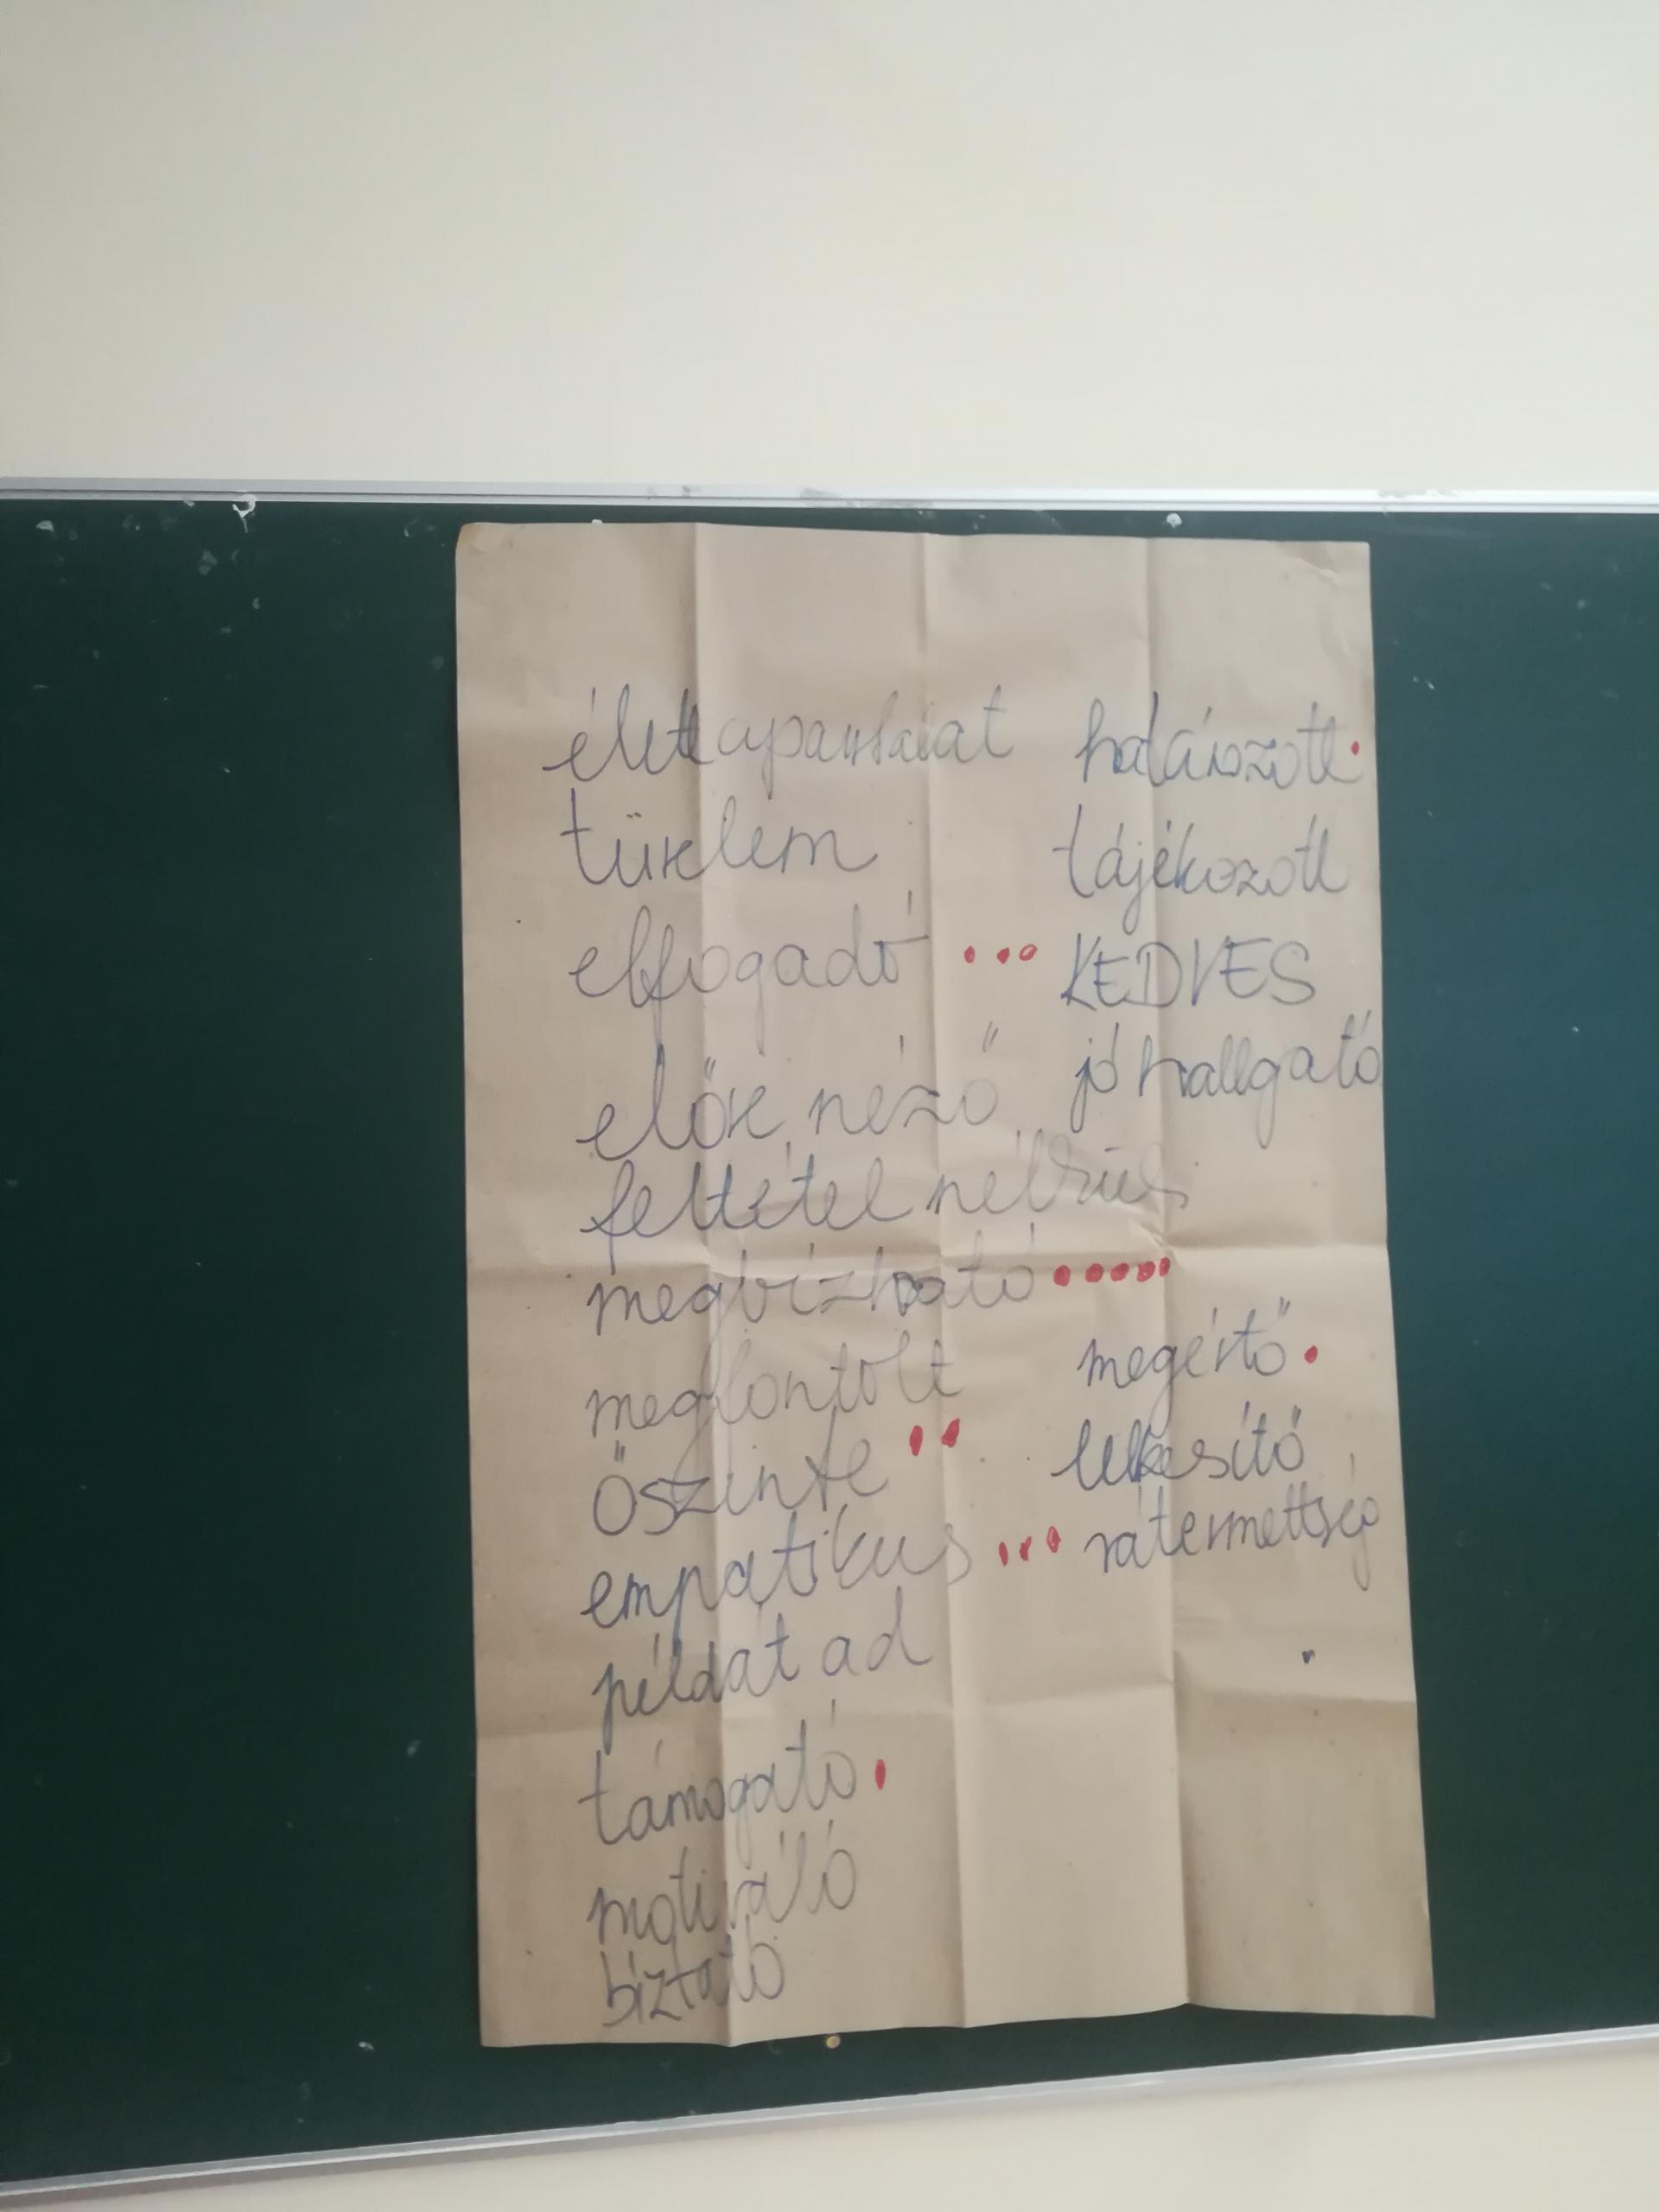 élettapasztalat
türelem
elfogadó
előre néző
feltétel nélküli
megbízható
megfontolt
őszinte
empatikus
példát ad
támogató
motiváló
bíztató
határozott
tájékozott
KEDVES
jó hallgató
megértő
lelkesítő
rátermettség